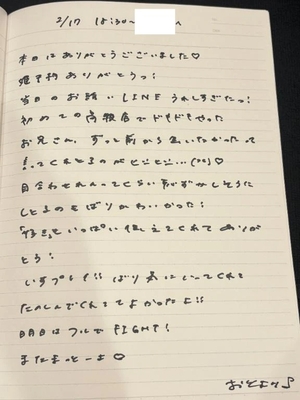 2/17 18:30~
本日はありがとうございました♡
姫予約ありがとうっ!
当日のお誘いLINEうれしすぎたっ!
初めての 店でドキドキやった
お兄さん、ずっと前から会いたかったって
言ってくれとるのがビビビ…♡
目合わせれんってくらい恥ずかしそうに
しとるのもばりかわいかった!
「好き」をいっぱい伝えてくれてありが
とう!
いすプレイ!!ばり気にいってくれて
たのしんでくれててよかったよ!!
明日はフルでFIGHT!
またまっとーよ♡
おとより